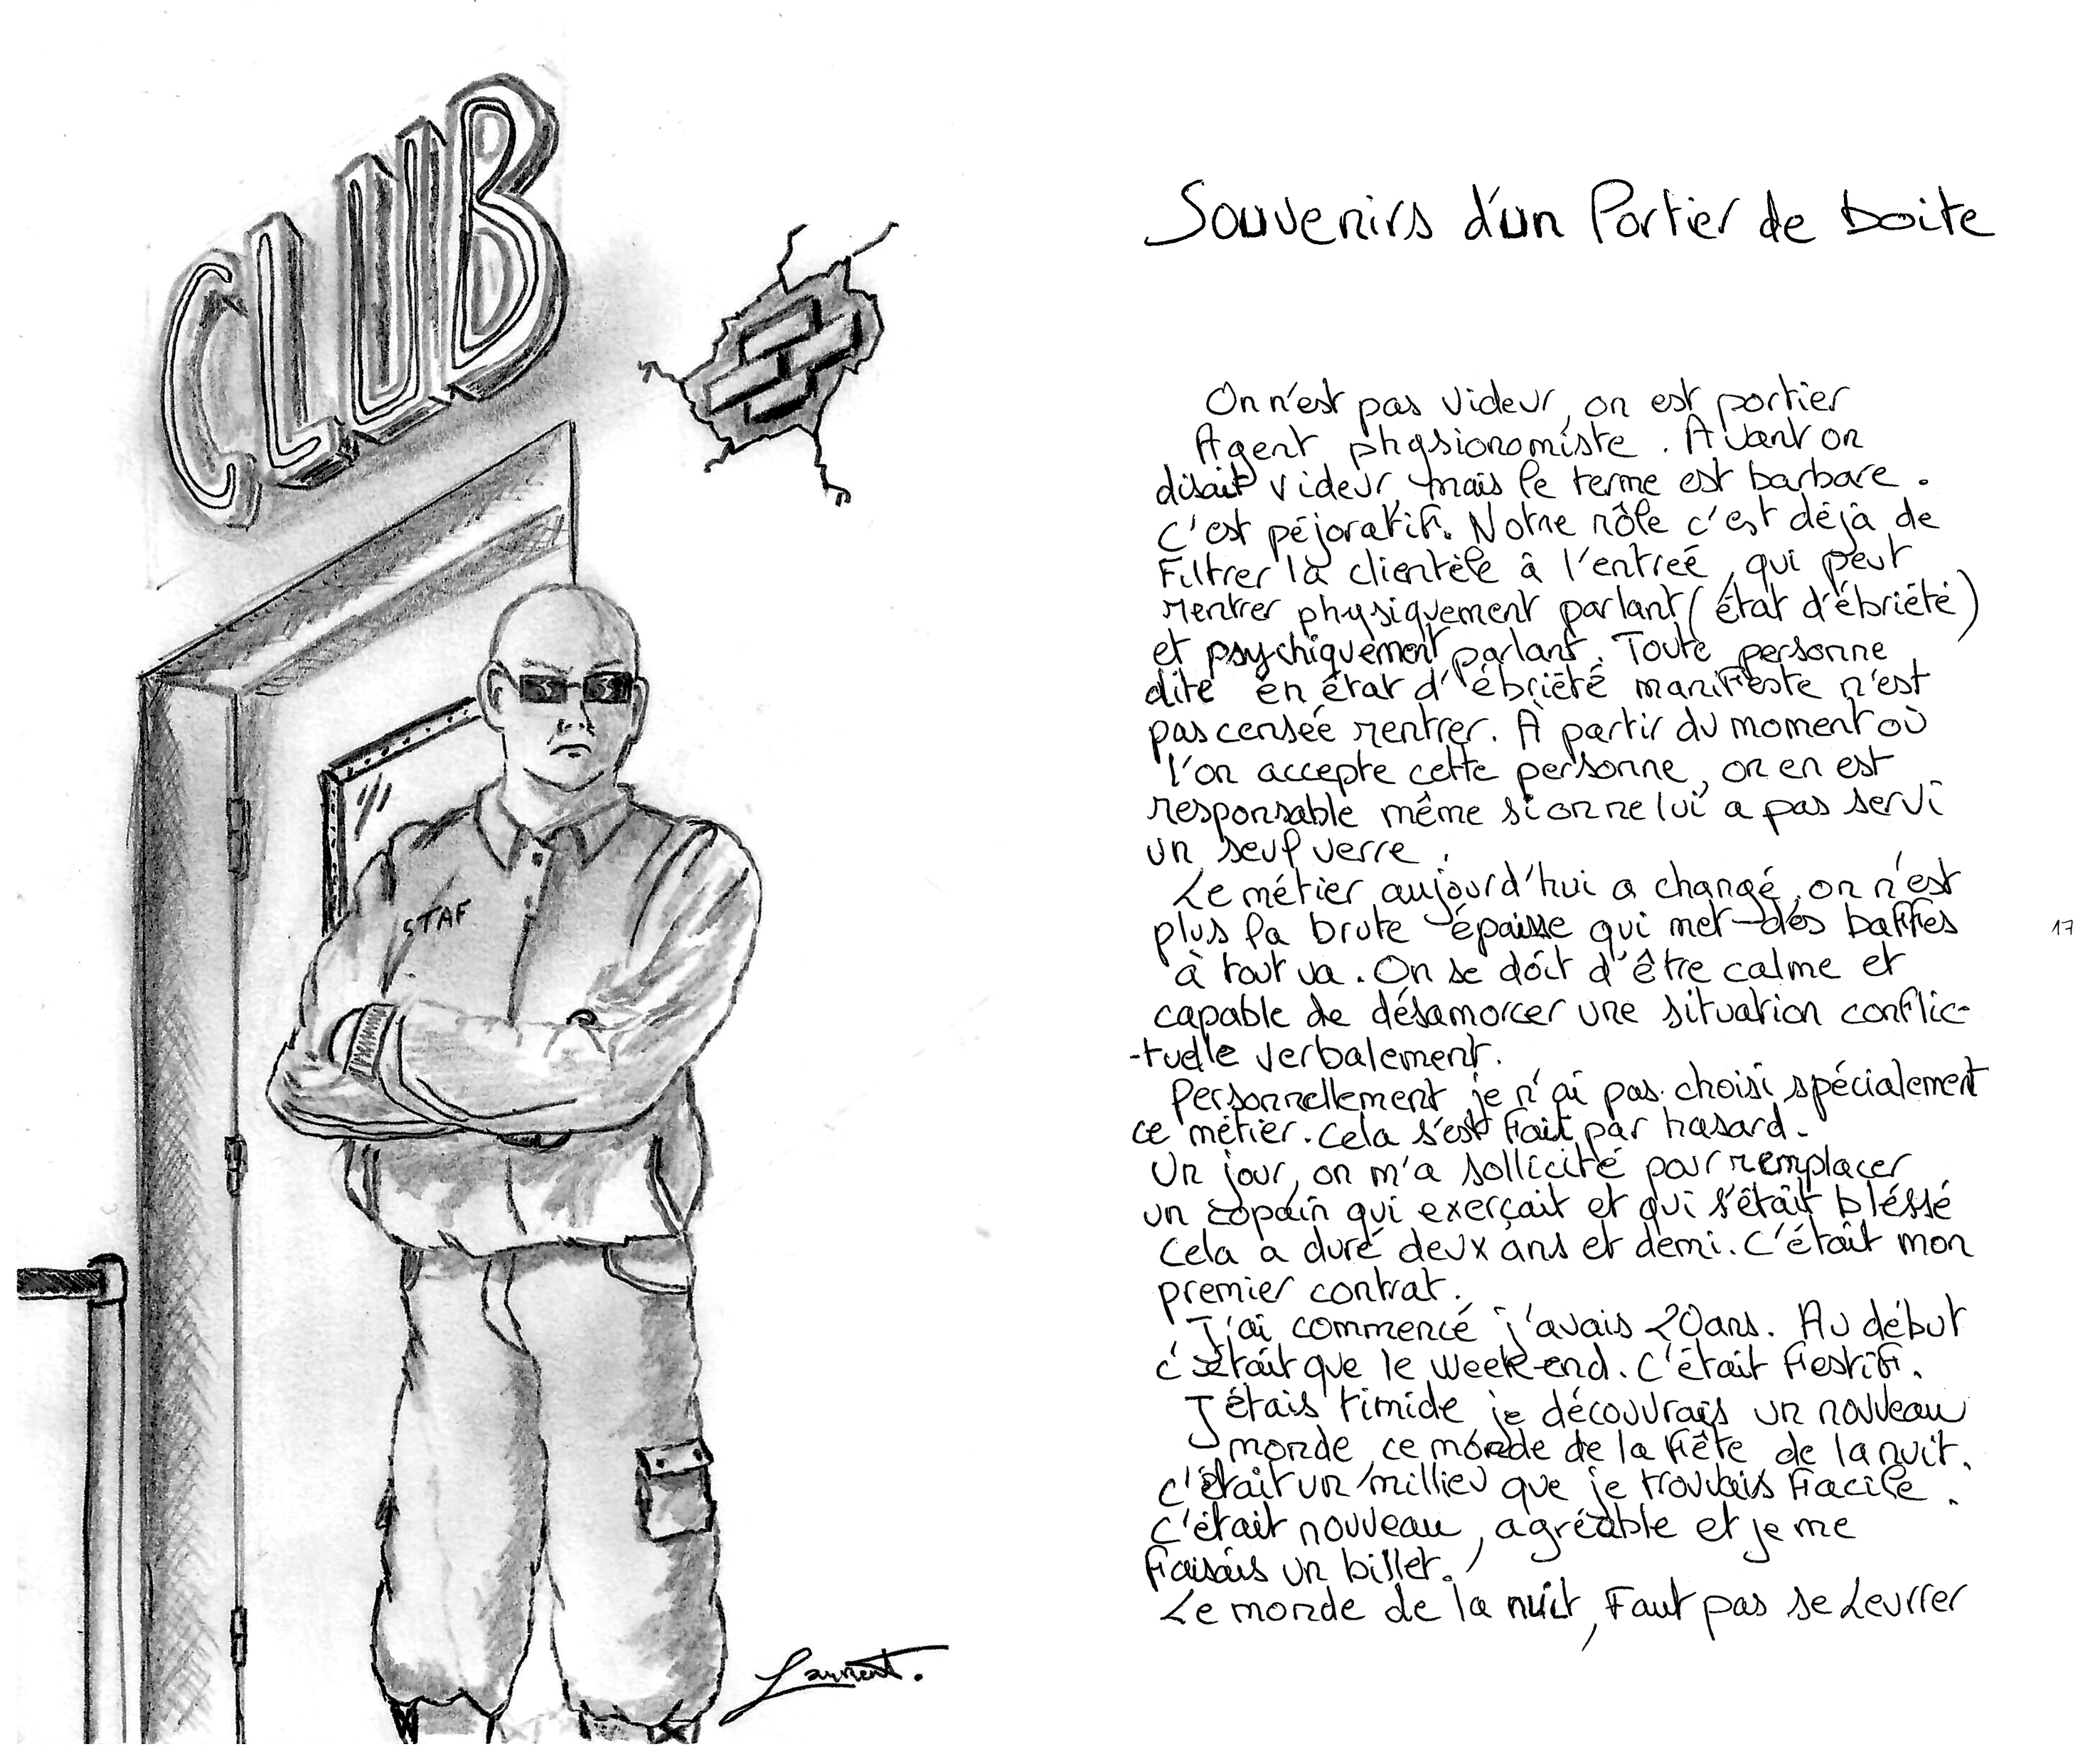 CLUB
STAF
Laurent.
Souvenirs d'un Portier de boite
On n'est pas videur, on est portier
Agent physionomiste. Avant on
disait videur, mais le terme est barbare.
C'est péjoratif. Notre rôle c'est déjà de
Filtrer la clientèle à l'entreé, qui peut
rentrer physiquement parlant (état d'ébriété)
et psychiquement parlant. Toute personne
dite en état d'ébriété manifeste n'est
pas censée rentrer. À partir du moment où
l'on accepte cette personne, on en est
responsable même si on ne lui a pas servi
un seul verre.
Le métier aujourd'hui a changé, on n'est
plus la brute épaisse qui met des baffes
à tout va. On se doit d'être calme et
capable de désamorcer une situation conflic-
-tuelle verbalement.
Personnellement je n'ai pas choisi spécialement
ce métier. Cela s'est fait par hasard.
Un jour, on m'a sollicité pour remplacer
un copain qui exerçait et qui s'était bléssé
Cela a duré deux ans et demi. C'était mon
premier contrat.
J'ai commencé j'avais 20ans. Au début
c'était que le week-end. C'était festif.
J'étais timide je découvrais un nouveau
monde, ce monde de la fête de la nuit.
C'était un millieu que je trouvais facile.
C'était nouveau, agréable et je me
faisais un billet.
Le monde de la nuit, Faut pas se Leurrer
17